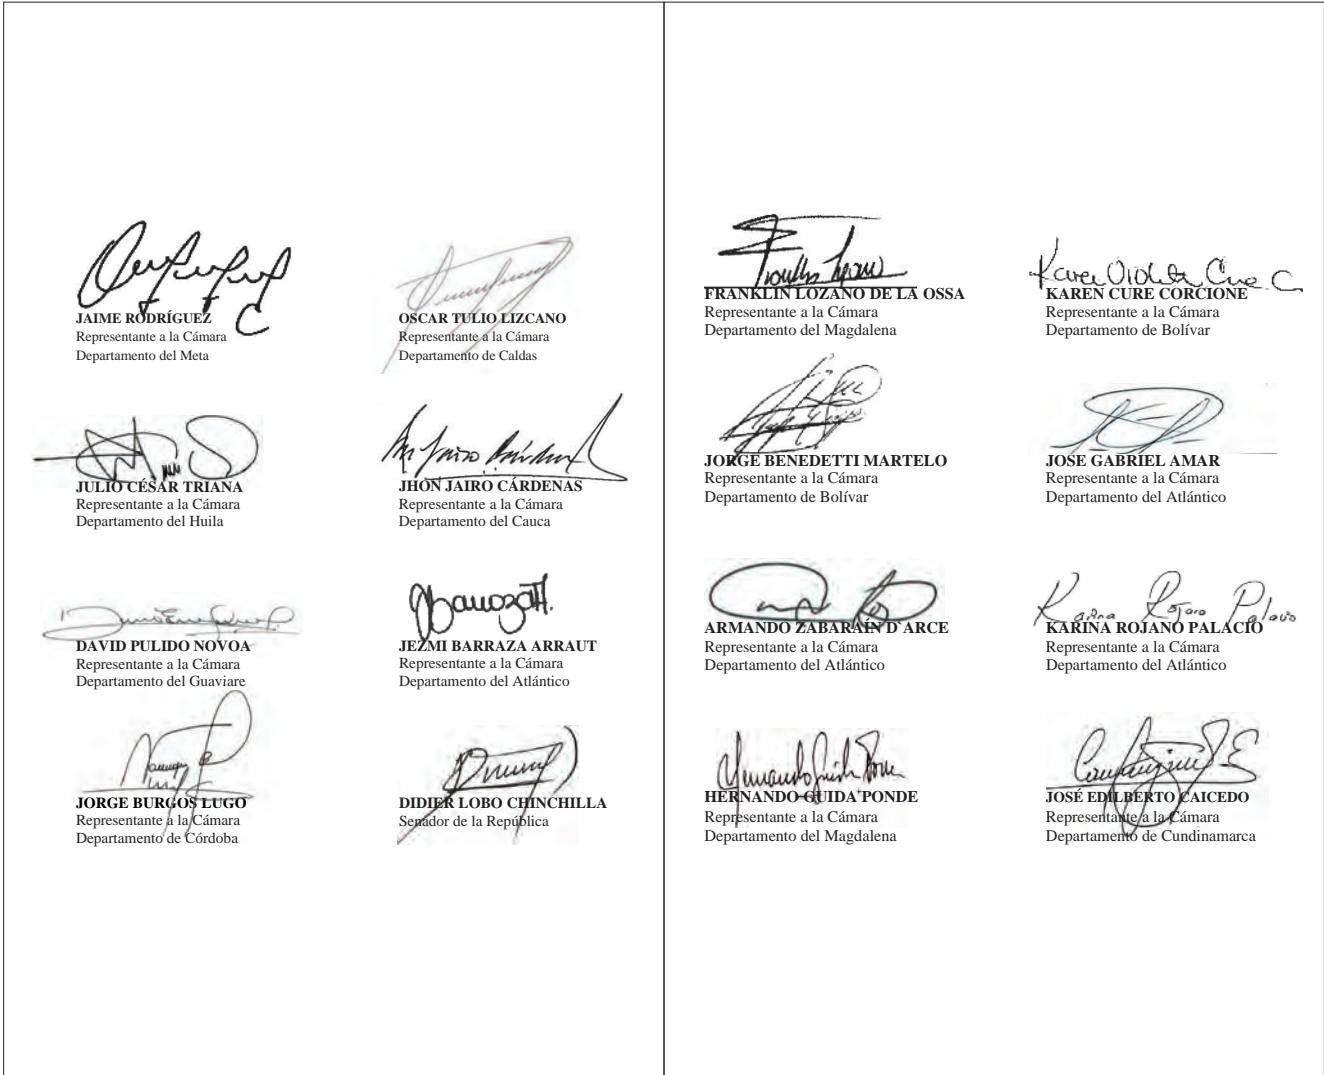 JAIME RODRÍGUEZ
Representante a la Cámara
Departamento del Meta
OSCAR TULIO LIZCANO
Representante a la Cámara
Departamento de Caldas
JULIO CÉSAR TRIANA
Representante a la Cámara
Departamento del Huila
JHON JAIRO CÁRDENAS
Representante a la Cámara
Departamento del Cauca
DAVID PULIDO NOVOA
Representante a la Cámara
Departamento del Guaviare
JEZMI BARRAZA ARRAUT
Representante a la Cámara
Departamento del Atlántico
JORGE BURGOS LUGO
Representante a la Cámara
Departamento de Córdoba
DIDIER LOBO CHINCHILLA
Senador de la República
FRANKLIN LOZANO DE LA OSSA
Representante a la Cámara
Departamento del Magdalena
Karen Violeta Cure C
KAREN CURE CORCIONE
Representante a la Cámara
Departamento de Bolívar
JORGE BENEDETTI MARTELO
Representante a la Cámara
Departamento de Bolívar
JOSE GABRIEL AMAR
Representante a la Cámara
Departamento del Atlántico
ARMANDO ZABARAÍN D´ARCE
Representante a la Cámara
Departamento del Atlántico
Karina Rojano Palacio
KARINA ROJANO PALACIO
Representante a la Cámara
Departamento del Atlántico
HERNANDO GUIDA PONDE
Representante a la Cámara
Departamento del Magdalena
JOSÉ EDILBERTO CAICEDO
Representante a la Cámara
Departamento de Cundinamarca